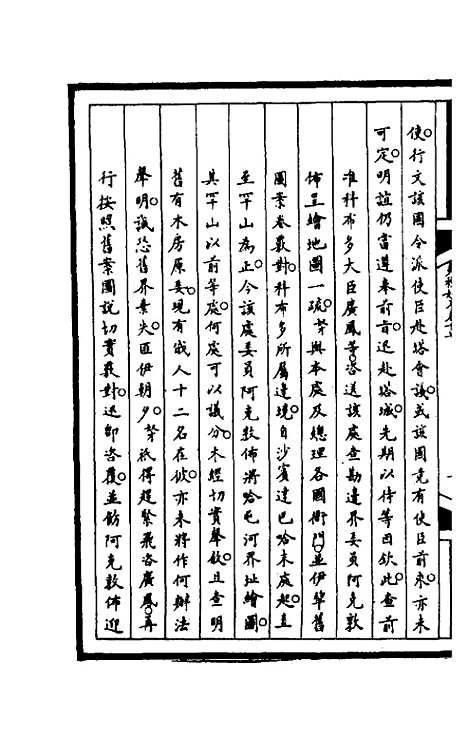 使行文該國令派使臣赴塔會議或該國竟有使臣前來亦未
可定明誼仍當遵奉前旨迅赴塔城先期以待等因欽此查前
准科布多大臣廣鳳等咨送該處查勘邊界委員阿克敦
佈呈繪地圖一疏等與本處及總理各國衙門並伊犂舊
圖案卷覈對科布多所屬邊境自沙賓達巴哈末處起直
至罕山為止今該處委員阿克敦佈將哈屯河界址繪圖
其罕山以前等處何處可以議分未經切實聲敘且查明
舊有木房原委現有俄人十二名在彼亦未將作何辦法
聲明誠恐舊界素失匪伊朝夕等祇得趕緊飛咨廣鳳再
行按照舊案圖說切實覈對迅即咨覆並飭阿克敦佈迎